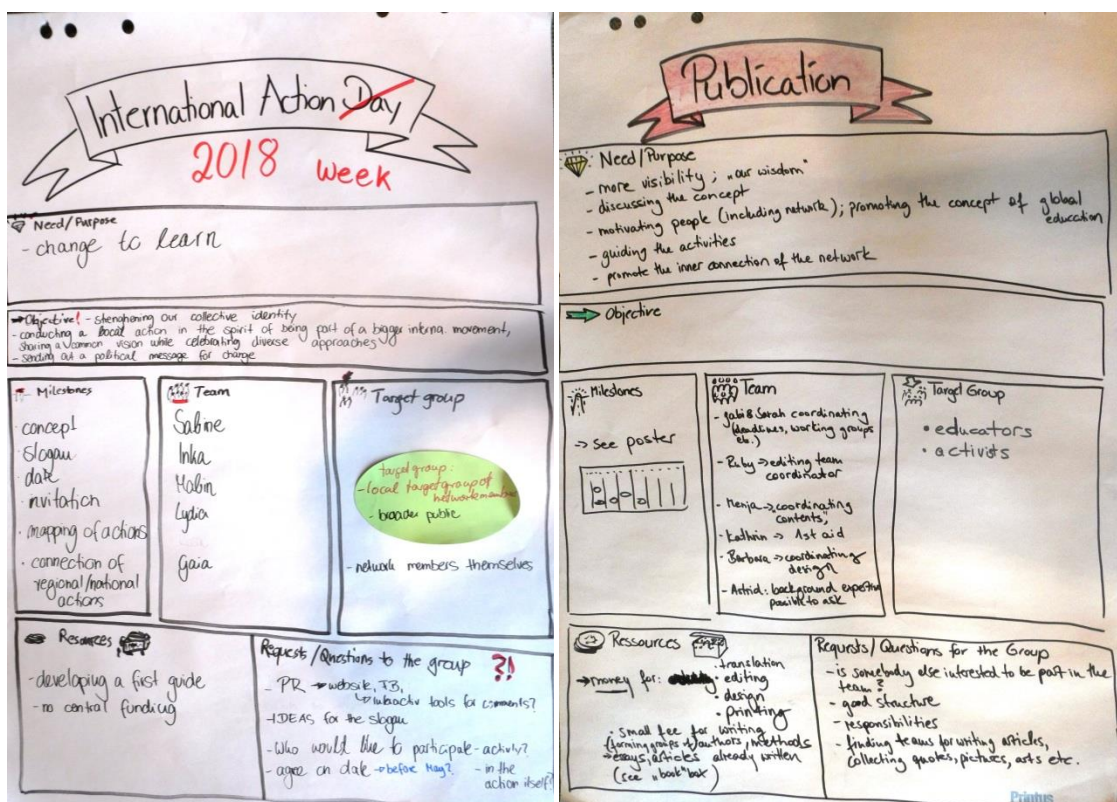 International Action Day
2018 week
Need/Purpose
- change to learn
Objective! - strenghening our collective identity
- conducting a local action in the spirit of being part of a bigger interna. movement,
sharing a common vision while celebrating diverse approaches
- sending out a political message for change
Milestones
· concept
· slogan
· date
· invitation
· mapping of actions
· connection of
regional/national
actions
Team
Sabine
Inka
Lydia
Gaia
Target group
target group:
- local target group of
network members
- broader public
- network members themselves
Resources
- developing a first guide
- no central funding
Requests/Questions to the group ?!
- PR → website, FB,
↳ interactiv tools for comments?
- IDEAS for the slogan
- Who would like to participate - activly?
- agree on date → before May? - in the
action itself?
Publication
Need/Purpose
- more visibility ; „our wisdom"
- discussing the concept
- motivating people (including network); promoting the concept of global
education
- guiding the activities
- promote the inner connection of the network
Objective
Milestones
→ see poster
Team
- Gabi & Sarah coordinating
(deadlines, working groups
etc.)
- Ruby → editing team
coordinator
- → coordinating
contents,"
- Kathrin → 1st aid
- Barbara → coordinating
design
- Astrid: background expertise
possible to ask
Target Group
• educators
• activists
Ressources
→ money for:
· translation
· editing
· design
· printing
· small fee for writing
(forming groups of) authors, methods
→ essays, articles already written
(see „book" box)
Requests/Questions for the Group
- is somebody else interested to be part in the
team?
- good structure
- responsibilities
- finding teams for writing articles,
collecting quotes, pictures, arts etc.
Printus